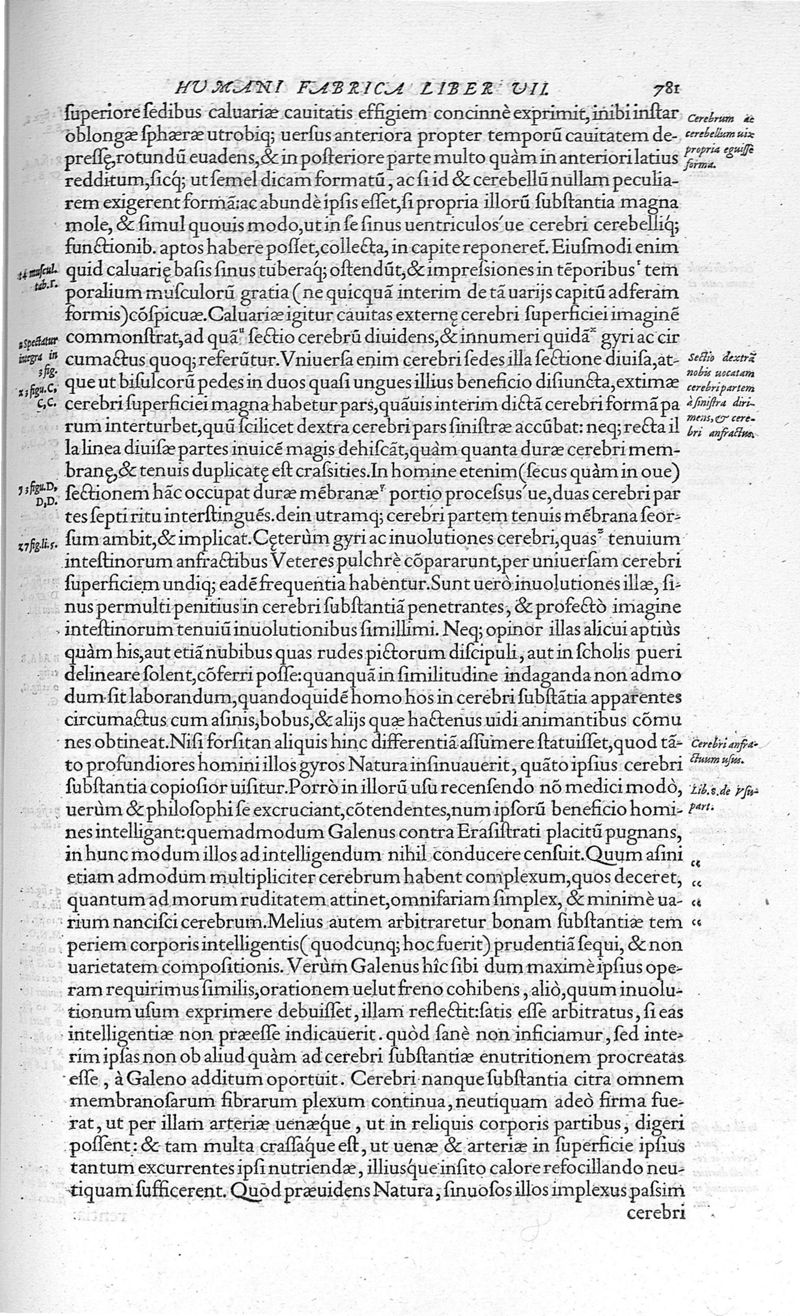 HUMANI FABRICA LIBER VII. 781
superiore sedibus caluariæ cauitatis effigiem concinnè exprimit, inibi instar
oblongæ sphæræ utrobiq; uersus anteriora propter temporũ cauitatem de-
pressę, rotundũ euadens, & in posteriore parte multo quàm in anteriori latius
redditum, sicq́; ut semel dicam formatũ, ac si id & cerebellũ nullam peculia-
rem exigerent formã: ac abundè ipsis esset, si propria illorũ substantia magna
mole, & simul quouis modo, ut in se sinus uentriculos'ue cerebri cerebelliq́;
functionib. aptos habere posset, collecta, in capite reponeret̃. Eiusmodi enim
quid caluarię basis sinus tuberaq́; ostendũt, & impressiones in tẽporibus ᵗ tem
poralium musculorũ gratia (ne quicquã interim de tã uarijs capitũ adferam
formis) cõspicuæ. Caluariæ igitur cauitas externę cerebri superficiei imaginẽ
commonstrat, ad quã ᵘ sectio cerebrũ diuidens, & innumeri quidã ˣ gyri ac cir
cumactus quoq; referũtur. Vniuersa enim cerebri sedes illa sectione diuisa, at-
que ut bisulcorũ pedes in duos quasi ungues illius beneficio disiuncta, extimæ
cerebri superficiei magna habetur pars, quãuis interim dictã cerebri formã pa
rum interturbet, quũ scilicet dextra cerebri pars sinistræ accũbat: neq; recta il
la linea diuisæ partes inuicẽ magis dehiscãt, quàm quanta duræ cerebri mem-
branę, & tenuis duplicatę est crassities. In homine etenim (secus quàm in oue)
sectionem hãc occupat duræ mẽbranæ ʸ portio processus'ue, duas cerebri par
tes septi ritu interstinguẽs. dein utramq; cerebri partem tenuis mẽbrana seor-
sum ambit, & implicat. Cęterùm gyri ac inuolutiones cerebri, quas ᶻ tenuium
intestinorum anfractibus Veteres pulchrè cõpararunt, per uniuersam cerebri
superficiem undiq; eadẽ frequentia habentur. Sunt uerò inuolutiones illæ, si-
nus permulti penitius in cerebri substantiã penetrantes, & profectò imagine
intestinorum tenuiũ inuolutionibus simillimi. Neq; opinor illas alicui aptiùs
quàm his, aut etiã nubibus quas rudes pictorum discipuli, aut in scholis pueri
delineare solent, cõferri posse: quanquã in similitudine indaganda non admo
dum sit laborandum, quandoquidẽ homo hos in cerebri substãtia apparentes
circumactus cum asinis, bobus, & alijs quæ hactenus uidi animantibus cõmu
nes obtineat. Nisi forsitan aliquis hinc differentiã assumere statuisset, quod tã-
to profundiores homini illos gyros Natura insinuauerit, quãto ipsius cerebri
substantia copiosior uisitur. Porrò in illorũ usu recensendo nõ medici modò,
uerùm & philosophi se excruciant, cõtendentes, num ipsorũ beneficio homi-
nes intelligant: quemadmodum Galenus contra Erasistrati placitũ pugnans,
in hunc modum illos ad intelligendum nihil conducere censuit. Quum asini
etiam admodum multipliciter cerebrum habent complexum, quos deceret,
quantum ad morum ruditatem attinet, omnifariam simplex, & minimè ua-
rium nancisci cerebrum. Melius autem arbitraretur bonam substantiæ tem
periem corporis intelligentis (quodcunq; hoc fuerit) prudentiã sequi, & non
uarietatem compositionis. Verùm Galenus hîc sibi dum maximè ipsius ope-
ram requirimus similis, orationem uelut freno cohibens, aliò, quum inuolu-
tionum usum exprimere debuisset, illam reflectit: satis esse arbitratus, si eas
intelligentiæ non præesse indicauerit. quòd sanè non inficiamur, sed inte-
rim ipsas non ob aliud quàm ad cerebri substantiæ enutritionem procreatas
esse, à Galeno additum oportuit. Cerebri nanque substantia citra omnem
membranosarum fibrarum plexum continua, neutiquam adeò firma fue-
rat, ut per illam arteriæ uenæq́ue, ut in reliquis corporis partibus, digeri
possent: & tam multa crassaq́ue est, ut uenæ & arteriæ in superficie ipsius
tantum excurrentes ipsi nutriendæ, illiusq́ue insito calore refocillando neu-
tiquam sufficerent. Quòd præuidens Natura, sinuosos illos implexus passim
cerebri
Cerebrum ac
cerebellum uix
propria eguisse
forma.
t 4 muscul.
tab. t.
u Spectatur
integra in
3 fig.
x 3 figu. C,
C, C.
Sectio dextrã
nobis uocatam
cerebri partem
à sinistra diri-
mens, & cere-
bri anfractus.
y 3 figu. D,
D, D.
z 7 fig. li. s.
Cerebri anfra-
ctuum usus.
Lib. 8. de usu
part.